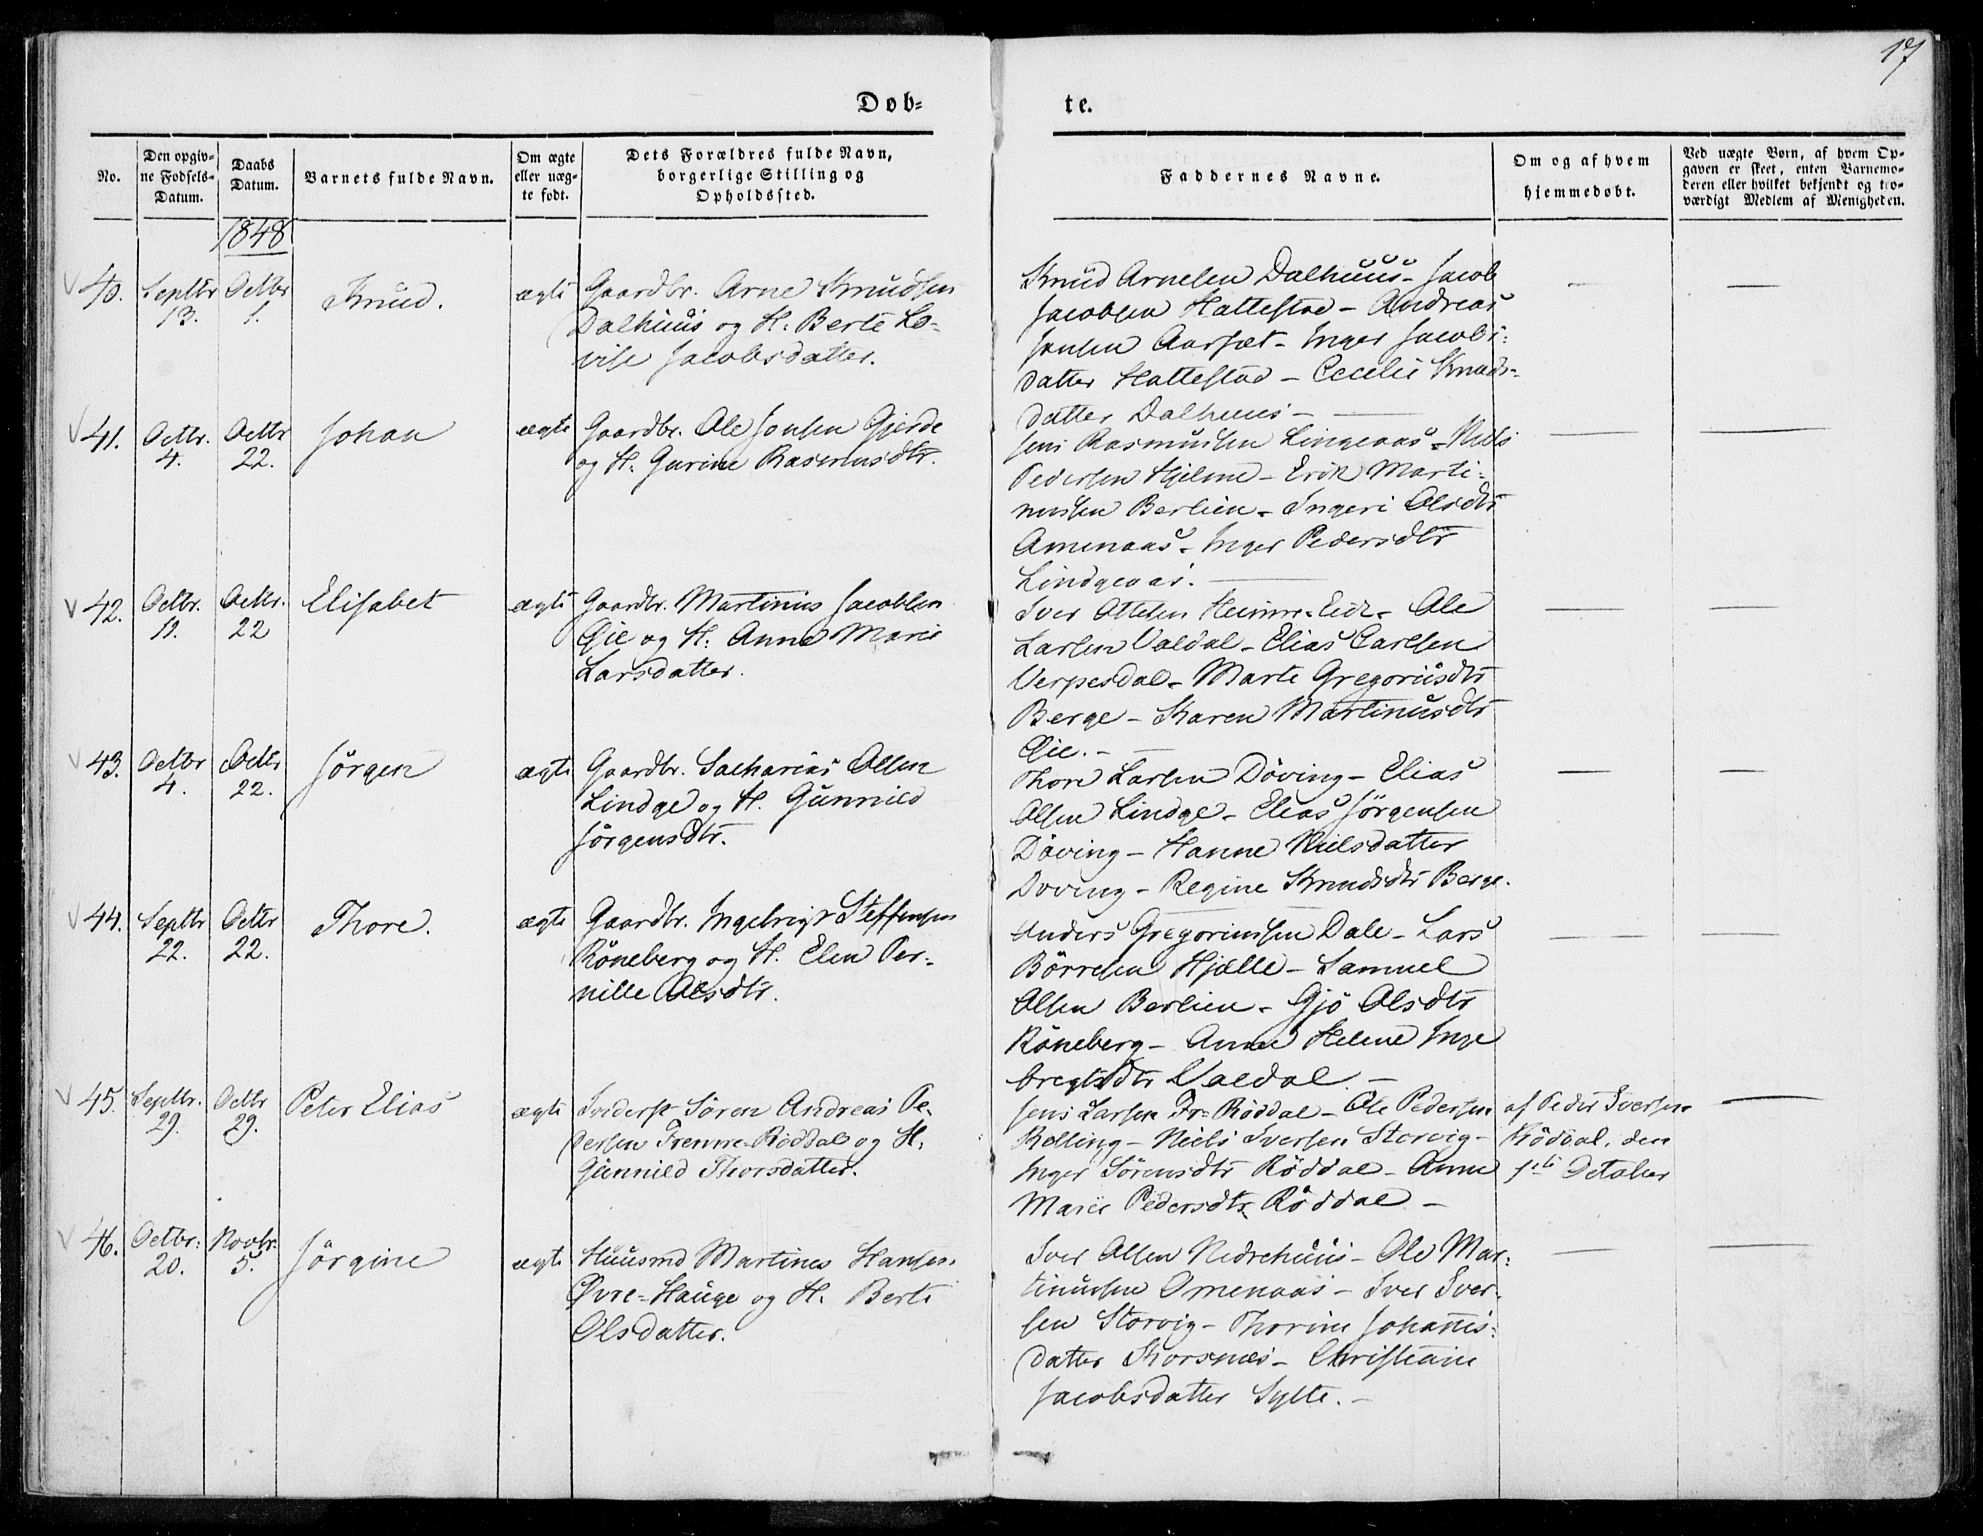 17
Døb-
te.
No.
Den opgiv-
ne Fødsels-
Datum.
Daabs
Datum.
Barnets fulde Navn.
Om ægte
eller uæg-
te født.
Dets Forældres fulde Navn,
borgerlige Stilling og
Opholdssted.
Faddernes Navne.
Om og af hvem
hjemmedøbt.
Ved uægte Børn, af hvem Op-
gaven er skeet, enten Barnemo-
deren eller hvilket bekjendt og tro-
værdigt Medlem af Menigheden.
1848
40.
Septbr
13.
Octbr
1.
Knud.
ægte
Gaardbr. Arne Knudsen
Dalhuus og H. Berte Lo-
vise Jacobsdatter.
Knud Arnesen Dalhuus - Jacob
Jacobsen Hattestad - Andreas
Jensen Aarset - Inger Jacobs-
datter Hattestad - Cecelie Knuds-
datter Dalhuus -
41.
Octbr.
4.
Octbr
22.
Johan
ægte
Gaardbr. Ole Jonsen Gjerde
og H. Gurine Rasmusdtr.
Jens Rasmussen Lingeaas - Niels
Pedersen Hjelme - Erik Marti-
nussen Berlien - Ingeri Olsdtr
Amenaas - Inger Pedersdtr
Lindgeaas. -
42.
Octbr.
11.
Octbr.
22
Elisabet
ægte
Gaardbr. Martinus Jacobsen
Øie og H. Anne Marie
Larsdatter.
Iver Ottesen Heimre-Eide - Ole
Larsen Valdal - Elias Carlsen
Verpesdal - Marte Gregoriusdtr
Berge - Karen Martinusdtr
Øie. -
43.
Octbr
4.
Octbr
22.
Jörgen
ægte
Gaardbr. Sacharias Olsen
Lindge og H. Gunnild
Jörgensdtr.
Thore Larsen Döving - Elias
Olsen Lindge - Elias Jörgensen
Döving - Hanne Nielsdatter
Döving - Regine Knudsdtr Berge.
44.
Septbr
22.
Octbr
22.
Thore.
ægte
Gaardbr. Ingebrigt Steffensen
Röneberg og H. Elen Per-
nille Olsdtr.
Anders Gregoriussen Dale - Lars
Börresen Hjelle - Samuel
Olsen Berlien - Gjö Olsdtr
Röneberg - Anne Helene Inge
bregtsdtr Valdal. -
45.
Septbr.
29.
Octbr
29.
Peter Elias
ægte
Inderst Sören Andreas Pe-
dersen Fremre-Röddal og H.
Gunnild Thorsdatter.
Jens Larsen Fr-Röddal - Ole Pedersen
Relling - Niels Iversen Storvig -
Inger Sörensdtr Röddal - Anne
Marie Pedersdtr Röddal -
af Peder Iversen
Röddal, den
1ste October
46.
Octbr.
20.
Novbr.
5.
Jörgine
ægte
Huusmd Martines Hansen
Øvre-Hauge og H. Berte
Olsdatter.
Iver Olsen Nedrehuus - Ole Mar-
tinussen Omenaas - Iver Iver-
sen Storvig - Thorine Johannes-
datter Korsnæs - Christiane
Jacobsdatter Sylte. -